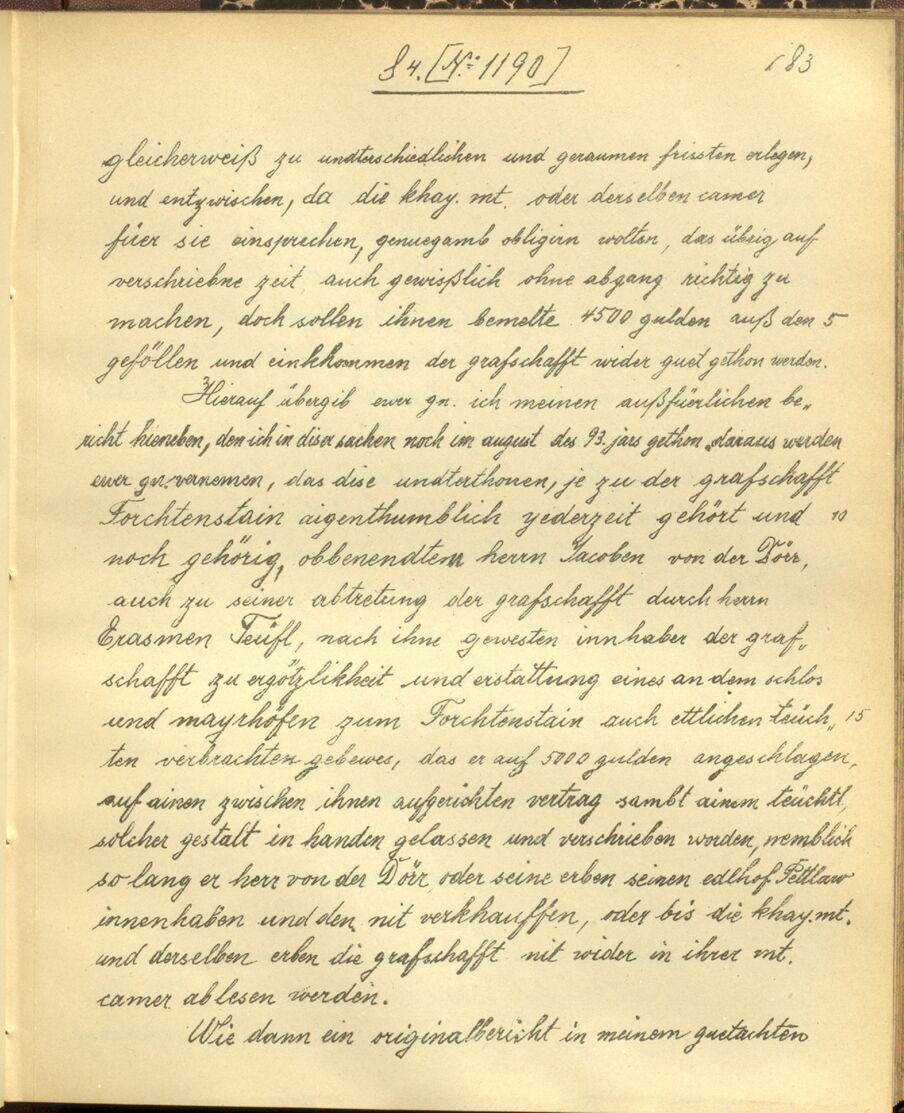 84. [No. 1190]
183
gleicherweiß zu undterschiedlichen und geraumen frissten erlegen,
und entzwischen, da die khay. mt. oder derselben camer
füer sie einsprechen, genuegamb obligirn wolten, das übrig auf
verschriebne zeit, auch gewißlich ohne abgang richtig zu
machen, doch sollen ihnen bemelte 4500 gulden auß den 5
geföllen und einkhommen der grafschafft wider guet gethon werden.
Hierauf übergib ewer gn. ich meinen außfüerlichen be„
richt hieneben, den ich in diser sachen noch im august des 93. jars gethon, daraus werden
ewer gn. vernemen, das dise undterthonen, je zu der grafschafft
Forchtenstain aigenthumblich yederzeit gehört und 10
noch gehörig, obbenendtem herrn Jacoben von der Dörr,
auch zu seiner abtretung der grafschafft durch herrn
Erasmen Teüfl, nach ihne gewesten innhaber der graf„
schafft zu ergötzlikheit und erstattung eines an dem schlos
und mayrhöfen zum Forchtenstain auch ettlichen teüch„ 15
ten verbrachten gebewes, das er auf 5000 gulden angeschlagen,
auf ainen zwischen ihnen aufgerichten vertrag sambt ainem teüchtl,
solcher gestalt in handen gelassen und verschrieben worden, nemblich
so lang er herr von der Dörr, oder seine erben seinen edlhof Pettlaw
innenhaben und den nit verkhauffen, oder bis die khay. mt.
und derselben erben die grafschafft nit wider in ihrer mt.
camer ablesen werden.
Wie dann ein originalbericht in meinem guetachten